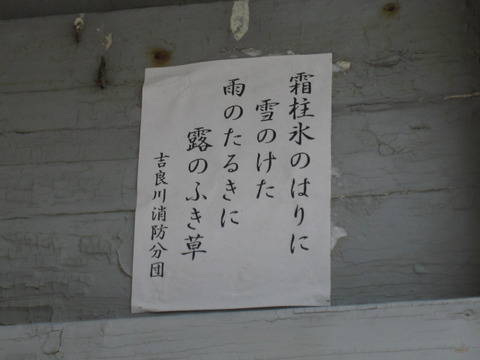 霜柱氷のはりに
雪のけた
雨のたるきに
露のふき草
吉良川消防分団